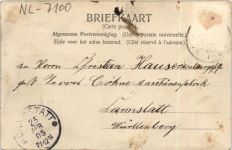 NL-7100
BRIEFKAART
(Carte postale)
Algemeene Postvereeniging. (Union postale universelle.)
Zijde voor het adres bestemd. (Côté réservé à l'adresse.)
den Herrn Christian Hauser
Söhne Maschinenfabrik
Cannstatt
Württemberg
25
APR
05